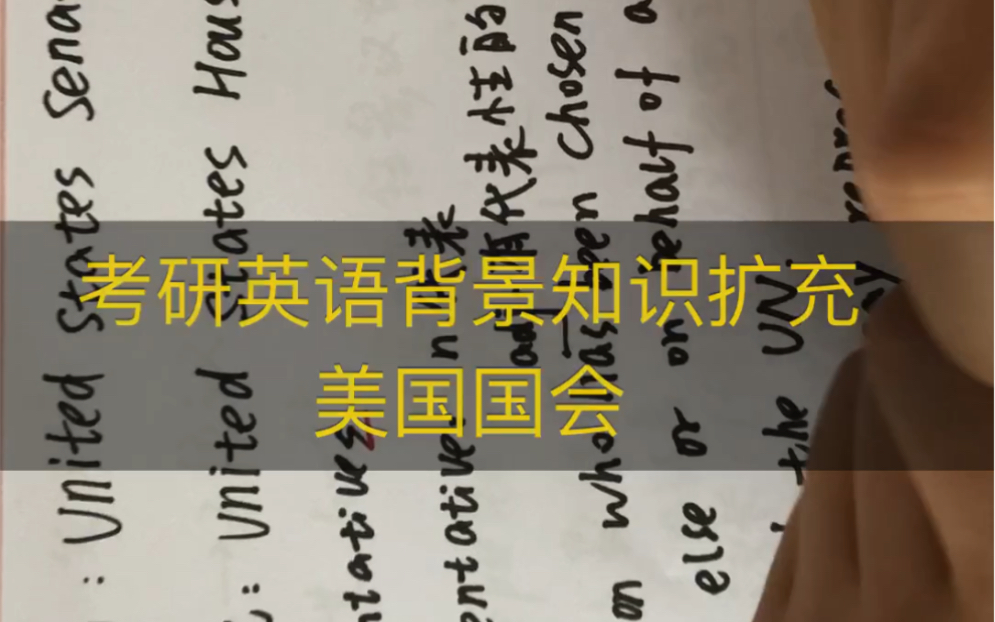 考研英语背景知识扩充
美国国会
: United States Sena
: United States Hous
ntatives
entative n 代表
adj 有代表性的
on who has been chosen
else or on behalf of a
the UN